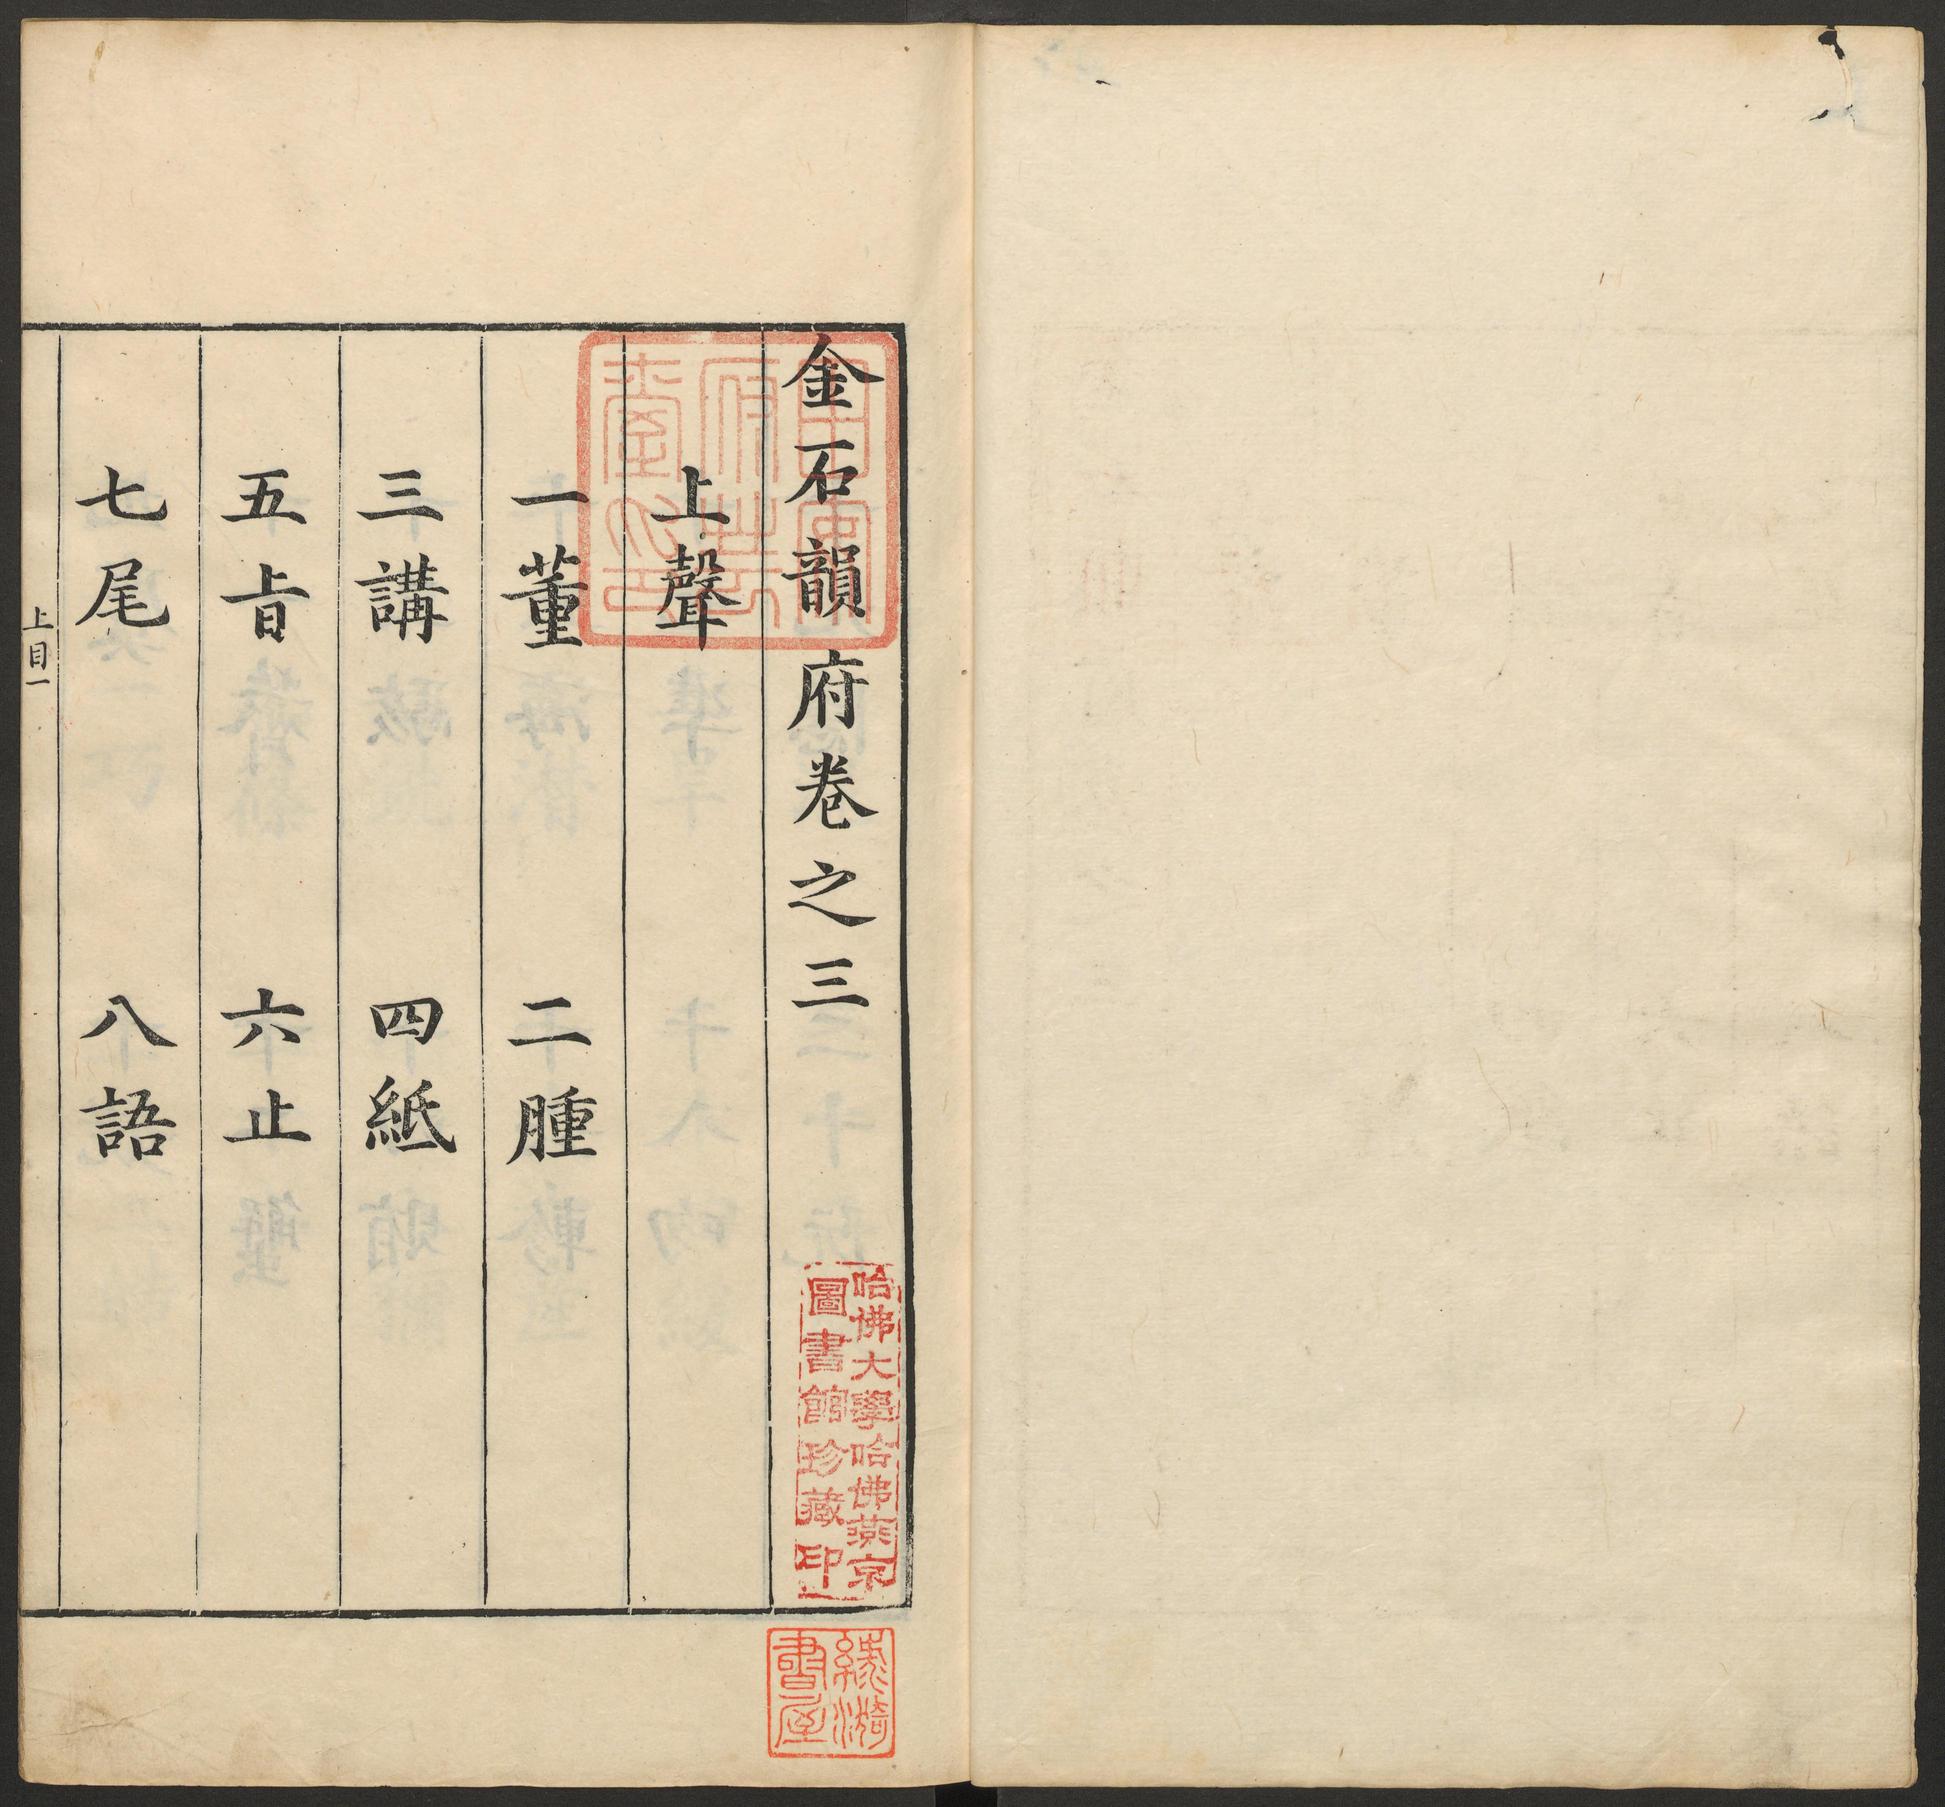 金石韻府卷之三
上聲
一董 二腫
三講 四紙
五旨 六止
七尾 八語
上目一
哈佛大學哈佛燕京
圖書館珍藏印
綠漪
書屋